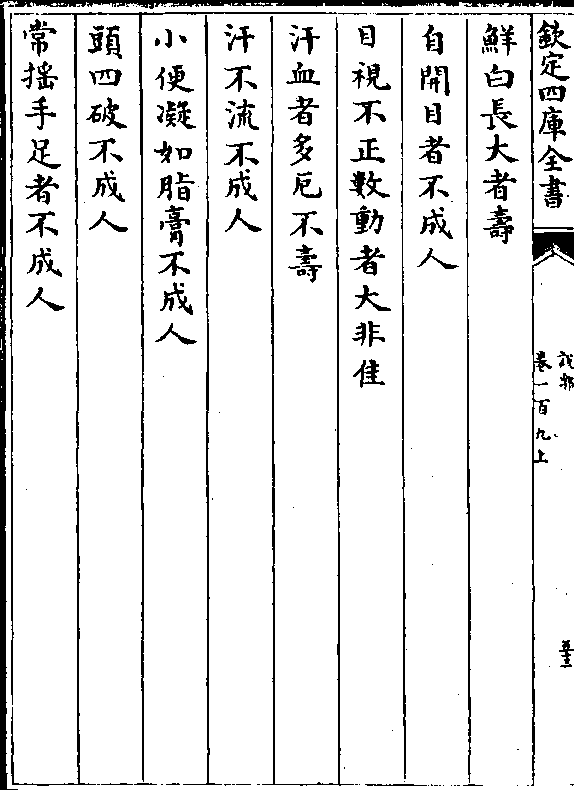 欽定四庫全書
說郛
卷一百九上
鮮白長大者壽
自開目者不成人
目視不正數動者大非佳
汗血者多厄不壽
汗不流不成人
小便凝如脂膏不成人
頭四破不成人
常搖手足者不成人